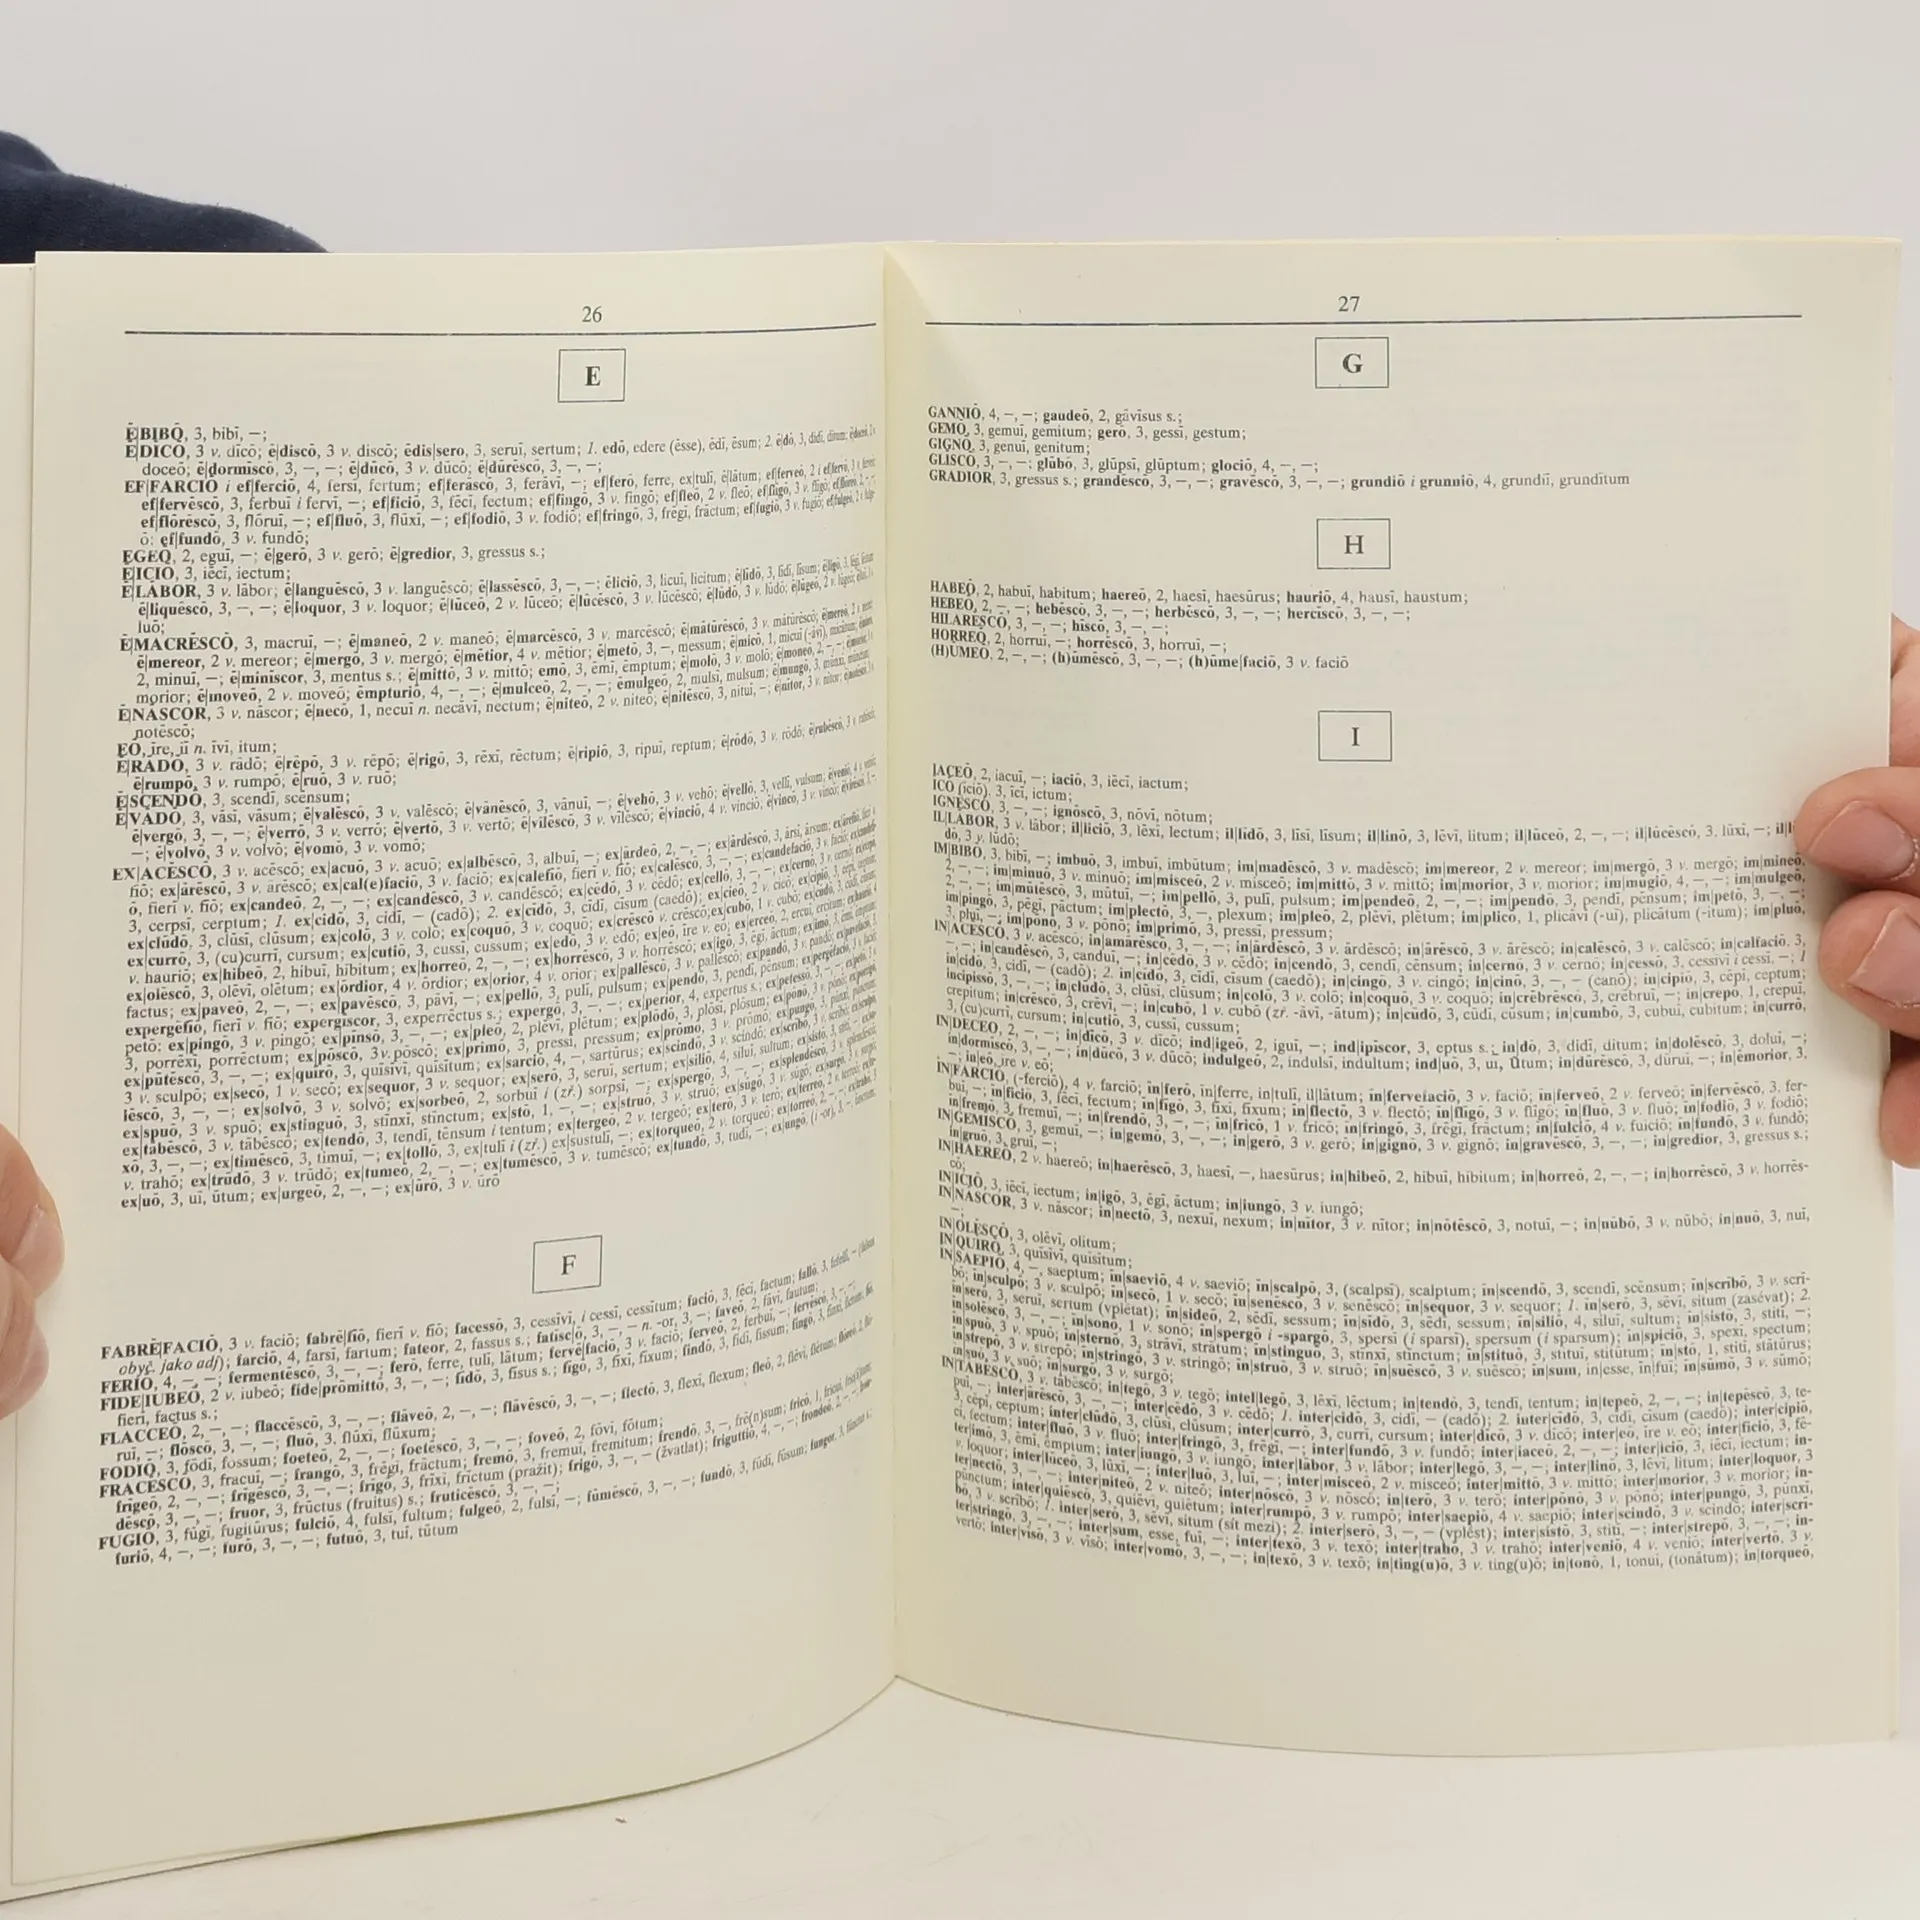 26
E
Ē|BIBŌ, 3, bibī, —;
Ē|DĪCŌ, 3 v. dīcō; ē|discō, 3 v. discō; ēdis|sero, 3, seruī, sertum; 1. edō, edere (ēsse), ēdī, ēsum; 2. ē|dō, 3, didī, ditum; ē|doceō, 2 v.
doceō; ē|dormīscō, 3, —, —; ē|dūcō, 3 v. dūcō; ē|dūrēscō, 3, —, —;
EF|FARCIŌ i ef|ferciō, 4, fersī, fertum; ef|ferāscō, 3, ferāvī, —; ef|ferō, ferre, ex|tulī, ē|lātum; ef|ferveō, 2 i ef|fervō, 3
ef|fervēscō, 3, ferbuī i fervī, —; ef|ficiō, 3, fēcī, fectum; ef|fingō, 3 v. fingō; ef|fleō, 2 v. fleō; ef|flīgō, 3 v. flīgō;
ef|flōrēscō, 3, flōruī, —; ef|fluō, 3, flūxī, —; ef|fodiō, 3 v. fodiō; ef|fringō, 3, frēgī, frāctum; ef|fugiō, 3 v. fugiō;
ō; ef|fundō, 3 v. fundō;
EGEŌ, 2, eguī, —; ē|gerō, 3 v. gerō; ē|gredior, 3, gressus s.;
Ē|ICIŌ, 3, iēcī, iectum;
Ē|LĀBOR, 3 v. lābor; ē|languēscō, 3 v. languēscō; ē|lassēscō, 3, —, —; ēliciō, 3, licuī, licitum; ē|līdō, 3, līsī, līsum;
ē|liquēscō, 3, —, —; ē|loquor, 3 v. loquor; ē|lūceō, 2 v. lūceō; ē|lūcēscō, 3 v. lūcēscō; ē|lūdō, 3 v. lūdō;
luō;
Ē|MACRĒSCŌ, 3, macruī, —; ē|maneō, 2 v. maneō; ē|marcēscō, 3 v. marcēscō; ē|mātūrēscō, 3 v. mātūrēscō;
ē|mereor, 2 v. mereor; ē|mergo, 3 v. mergō; ē|mētior, 4 v. mētior; ē|metō, 3, —, messum; ē|micō, 1, micuī (-āvī),
2, minuī, —; ē|miniscor, 3, mentus s.; ē|mittō, 3 v. mittō; emō, 3, ēmī, ēmptum; ē|molō, 3 v. molō; ē|moneō, 2, —, —;
morior; ē|moveō, 2 v. moveō; ēmpturiō, 4, —, —; ē|mulceō, 2, —, —; ēmulgeō, 2, mulsī, mulsum;
Ē|NĀSCOR, 3 v. nāscor; ē|necō, 1, necuī n. necāvī, nectum; ē|niteō, 2 v. niteō; ē|nitēscō, 3, nituī, —; ē|nītor, 3 v. nītor;
notēscō;
EŌ, īre, iī n. īvī, itum;
Ē|RĀDŌ, 3 v. rādō; ē|rēpō, 3 v. rēpō; ē|rigō, 3, rēxī, rēctum; ē|ripiō, 3, ripuī, reptum; ē|rōdō, 3 v. rōdō;
ē|rumpō, 3 v. rumpō; ē|ruō, 3 v. ruō;
Ē|SCENDŌ, 3, scendī, scēnsum;
Ē|VĀDŌ, 3, vāsī, vāsum; ē|valēscō, 3 v. valēscō; ē|vānēscō, 3, vānuī, —; ē|vehō, 3 v. vehō; ē|vellō, 3, vellī, vulsum;
ē|vergō, 3, —, —; ē|verrō, 3 v. verrō; ē|vertō, 3 v. vertō; ē|vīlēscō, 3 v. vīlēscō; ē|vinciō, 4 v. vinciō; ē|vincō, 3 v. vincō;
—; ē|volvō, 3 v. volvō; ē|vomō, 3 v. vomō;
EX|ACĒSCŌ, 3 v. acēscō; ex|acuō, 3 v. acuō; ex|albēscō, 3, albuī, —; ex|ārdeō, 2, —, —; ex|ārdēscō, 3, ārsī, ārsum;
fiō; ex|ārēscō, 3 v. ārēscō; ex|cal(e)faciō, 3 v. faciō; ex|calefīō, fierī v. fīō; ex|calēscō, 3, —, —;
ō, fierī v. fīō; ex|candeō, 2, —, —; ex|candēscō, 3 v. candēscō; ex|cēdō, 3 v. cēdō; ex|cellō, 3, —, —;
3, cerpsī, cerptum; 1. ex|cidō, 3, cidī, — (cadō); 2. ex|cīdō, 3, cīdī, cīsum (caedō);
ex|clūdō, 3, clūsī, clūsum; ex|colō, 3 v. colō; ex|coquō, 3 v. coquō; ex|crēscō v. crēscō; ex|cubō, 1 v. cubō;
ex|currō, 3, (cu)currī, cursum; ex|cutiō, 3, cussī, cussum; ex|edō, 3 v. edō; ex|eō, īre v. eō;
v. hauriō; ex|hibeō, 2, hibuī, hibitum; ex|horreō, 2, —, —; ex|horrēscō, 3 v. horrēscō; ex|igō, 3, ēgī, āctum;
ex|olēscō, 3, olēvī, olētum; ex|ōrdior, 4 v. ōrdior; ex|orior, 4 v. orior; ex|pallēscō, 3 v. pallēscō;
factus; ex|paveō, 2, —, —; ex|pavēscō, 3, pāvī, —; ex|pellō, 3, pulī, pulsum; ex|pendō, 3, pendī, pēnsum;
expergēfiō, fierī v. fīō; expergīscor, 3, experrēctus s.; expergō, 3, —, —; ex|perior, 4, expertus s.;
petō; ex|pingō, 3 v. pingō; ex|pīnsō, 3, —, —; ex|pleō, 2, plēvī, plētum; ex|plōdō, 3, plōsī, plōsum;
3, porrēxī, porrēctum; ex|pōscō, 3v.pōscō; ex|primō, 3, pressī, pressum; ex|prōmō, 3 v. prōmō;
ex|pūtēscō, 3, —, —; ex|quīrō, 3, quīsīvī, quīsītum; ex|sarciō, 4, —, sartūrus; ex|scindō, 3 v. scindō;
3 v. sculpō; ex|secō, 1 v. secō; ex|sequor, 3 v. sequor; ex|serō, 3, seruī, sertum; ex|siliō, 4, siluī, sultum;
lēscō, 3, —, —; ex|solvō, 3 v. solvō; ex|sorbeō, 2, sorbuī i (zř.) sorpsī, —; ex|spergō, 3, —, —;
ex|spuō, 3 v. spuō; ex|stinguō, 3, stīnxī, stīnctum; ex|stō, 1, —, —; ex|struō, 3 v. struō; ex|sūgō, 3 v. sūgō;
ex|tābēscō, 3 v. tābēscō; ex|tendō, 3, tendī, tēnsum i tentum; ex|tergeō, 2 v. tergeō; ex|terō, 3 v. terō;
xō, 3, —, —; ex|timēscō, 3, timuī, —; ex|tollō, 3, ex|tulī i (zř.) ex|sustulī, —; ex|torqueō, 2 v. torqueō;
v. trahō; ex|trūdō, 3 v. trūdō; ex|tumeō, 2, —, —; ex|tumēscō, 3 v. tumēscō; ex|tundō, 3, tudī, —;
ex|uō, 3, uī, ūtum; ex|urgeō, 2, —, —; ex|ūrō, 3 v. ūrō
F
FABRĒ|FACIŌ, 3 v. faciō; fabrē|fīō, fierī v. fīō; facessō, 3, cessīvī, i cessī, cessītum; faciō, 3, fēcī, factum; fallō, 3, fefellī, —
obyč. jako adj); farciō, 4, farsī, fartum; fateor, 2, fassus s.; fatīscō, 3, —, — n. -or, 3, —; faveō, 2, fāvī, fautum;
FERIŌ, 4, —, —; fermentēscō, 3, —, —; ferō, ferre, tulī, lātum; fervē|faciō, 3 v. faciō; ferveō, 2, ferbuī, —; fervēscō, 3, —, —;
FIDE|IUBEŌ, 2 v. iubeō; fide|prōmittō, 3, —, —; fīdō, 3, fīsus s.; fīgō, 3, fīxī, fīxum; findō, 3, fidī, fissum; fingō, 3, finxī, fictum;
fierī, factus s.;
FLACCEŌ, 2, —, —; flaccēscō, 3, —, —; flāveō, 2, —, —; flāvēscō, 3, —, —; flectō, 3, flexī, flexum; fleō, 2, flēvī, flētum;
ruī, —; flōscō, 3, —, —; fluō, 3. flūxī, flūxum;
FODIŌ, 3, fōdī, fossum; foeteō, 2, —, —; foetēscō, 3, —, —; foveō, 2, fōvī, fōtum;
FRACĒSCŌ, 3, fracuī, —; frangō, 3, frēgī, frāctum; fremō, 3, fremuī, fremitum; frendō, 3, —, frē(n)sum;
frīgeō, 2, —, —; frīgēscō, 3, —, —; frīgō, 3, frīxī, frīctum (pražit); frīgō, 3, —, — (žvatlat); friguttiō, 4, —, —;
dēscō, 3, —, —; fruor, 3, frūctus (fruitus) s.; fruticēscō, 3, —, —;
FUGIŌ, 3, fūgī, fugitūrus; fulciō, 4, fulsī, fultum; fulgeō, 2, fulsī, —; fūmēscō, 3, —, —; fundō, 3, fūdī, fūsum;
furiō, 4, —, —; furō, 3, —, —; futuō, 3, tuī, tūtum
27
G
GANNIŌ, 4, —, —; gaudeō, 2, gāvīsus s.;
GEMŌ, 3, gemuī, gemitum; gerō, 3, gessī, gestum;
GIGNŌ, 3, genuī, genitum;
GLĪSCŌ, 3, —, —; glūbō, 3, glūpsī, glūptum; glociō, 4, —, —;
GRADIOR, 3, gressus s.; grandēscō, 3, —, —; gravēscō, 3, —, —; grundiō i grunniō, 4, grundiī, grundītum
H
HABEŌ, 2, habuī, habitum; haereō, 2, haesī, haesūrus; hauriō, 4, hausī, haustum;
HEBEŌ, 2, —, —; hebēscō, 3, —, —; herbēscō, 3, —, —; hercīscō, 3, —, —;
HILARĒSCŌ, 3, —, —; hīscō, 3, —, —;
HORREŌ, 2, horruī, —; horrēscō, 3, horruī, —;
(H)ŪMEŌ. 2, —, —; (h)ūmēscō, 3, —, —; (h)ūme|faciō, 3 v. faciō
I
IACEŌ, 2, iacuī, —; iaciō, 3, iēcī, iactum;
ĪCŌ (īciō). 3, īcī, ictum;
IGNĒSCŌ, 3, —, —; ignōscō, 3, nōvī, nōtum;
IL|LĀBOR, 3 v. lābor; il|liciō, 3, lēxī, lectum; il|līdō, 3, līsī, līsum; il|linō, 3, lēvī, litum; il|lūceō, 2, —, —; il|lūcēscō, 3. lūxī, —;
dō, 3 v. lūdō;
IM|BIBŌ, 3, bibī, —; imbuō, 3, imbuī, imbūtum; im|madēscō, 3 v. madēscō; im|mereor, 2 v. mereor; im|mergō, 3 v. mergō; im|mineō,
2, —, —; im|minuō, 3 v. minuō; im|misceō, 2 v. misceō; im|mittō, 3 v. mittō; im|morior, 3 v. morior; im|mūgiō, 4, —, —; im|mulgeō,
2, —, —; im|mūtēscō, 3, mūtuī, —; im|pellō, 3, pulī, pulsum; im|pendeō, 2, —, —; im|pendō, 3, pendī, pēnsum; im|petō, 3, —, —;
im|pingō, 3, pēgī, pāctum; im|plectō, 3, —, plexum; im|pleō, 2, plēvī, plētum; im|plicō, 1, plicāvī (-uī), plicātum (-itum); im|pluō,
3, pluī, —; im|pōnō, 3 v. pōnō; im|primō, 3, pressī, pressum;
IN|ACĒSCŌ, 3 v. acēscō; in|amārēscō, 3, —, —; in|ārdēscō, 3 v. ārdēscō; in|ārēscō, 3 v. ārēscō; in|calēscō, 3 v. calēscō; in|calfaciō, 3,
—, —; in|candēscō, 3, canduī, —; in|cēdō, 3 v. cēdō; in|cendō, 3, cendī, cēnsum; in|cernō, 3 v. cernō; in|cessō, 3, cessīvī i cessī, —; 1
in|cidō, 3, cidī, — (cadō); 2. in|cīdō, 3, cīdī, cīsum (caedō); in|cingō, 3 v. cingō; in|cinō, 3, —, — (canō); in|cipiō, 3, cēpī, ceptum;
incipissō, 3, —, —; in|clūdō, 3, clūsī, clūsum; in|colō, 3 v. colō; in|coquō, 3 v. coquō; in|crēbrēscō, 3, crēbruī, —; in|crepō, 1, crepuī,
crepitum; in|crēscō, 3, crēvī, —; in|cubō, 1 v. cubō (zř. -āvī, -ātum); in|cūdō, 3, cūdī, cūsum; in|cumbō, 3, cubuī, cubitum; in|currō,
3, (cu)currī, cursum; in|cutiō, 3, cussī, cussum;
IN|DECEŌ, 2, —, —; in|dīcō, 3 v. dīcō; ind|igeō, 2, iguī, —; ind|ipīscor, 3, eptus s.; in|dō, 3, didī, ditum; in|dolēscō, 3, doluī, —;
in|dormīscō, 3, —, —; in|dūcō, 3 v. dūcō; indulgeō, 2, indulsī, indultum; ind|uō, 3, uī, ūtum; in|dūrēscō, 3, dūruī, —; in|ēmorior, 3,
—; in|eō, īre v. eō;
IN|FARCIŌ, (-ferciō), 4 v. farciō; in|ferō, in|ferre, in|tulī, il|lātum; in|fervefaciō, 3 v. faciō; in|ferveō, 2 v. ferveō; in|fervēscō, 3. fer-
buī, —; in|ficiō, 3, fēcī, fectum; in|fīgō, 3, fīxī, fīxum; in|flectō, 3 v. flectō; in|flīgō, 3 v. flīgō; in|fluō, 3 v. fluō; in|fodiō, 3 v. fodiō;
in|fremō, 3, fremuī, —; in|frendō, 3, —, —; in|fricō, 1 v. fricō; in|fringō, 3, frēgī, frāctum; in|fulciō, 4 v. fulciō; in|fundō, 3 v. fundō;
IN|GEMĪSCŌ, 3, gemuī, —; in|gemō, 3, —, —; in|gerō, 3 v. gerō; in|gignō, 3 v. gignō; in|gravēscō, 3, —, —; in|gredior, 3, gressus s.;
in|gruō, 3, gruī, —;
IN|HAEREŌ, 2 v. haereō; in|haerēscō, 3, haesī, —, haesūrus; in|hibeō, 2, hibuī, hibitum; in|horreō, 2, —, —; in|horrēscō, 3 v. horrēs-
cō;
IN|ICIŌ, 3, iēcī, iectum; in|igō, 3, ēgī, āctum; in|iungō, 3 v. iungō;
IN|NĀSCOR, 3 v. nāscor; in|nectō, 3, nexuī, nexum; in|nītor, 3 v. nītor; in|nōtēscō, 3, notuī, —; in|nūbō, 3 v. nūbō; in|nuō, 3, nuī,
—;
IN|OLĒSCŌ, 3, olēvī, olitum;
IN|QUĪRŌ, 3, quīsīvī, quīsītum;
IN|SAEPIŌ, 4, —, saeptum; in|saeviō, 4 v. saeviō; in|scalpō, 3, (scalpsī), scalptum; in|scendō, 3, scendī, scēnsum; in|scrībō, 3 v. scrī-
bō; in|sculpō, 3 v. sculpō; in|secō, 1 v. secō; in|senēscō, 3 v. senēscō; in|sequor, 3 v. sequor; 1. in|serō, 3, sēvī, situm (zasévat); 2.
in|serō, 3, seruī, sertum (vplétat); in|sideō, 2, sēdī, sessum; in|sīdō, 3, sēdī, sessum; in|siliō, 4, siluī, sultum; in|sistō, 3, stitī, —;
in|solēscō, 3, —, —; in|sonō, 1 v. sonō; in|spergō i -spargō, 3, spersī (i sparsī), spersum (i sparsum); in|spiciō, 3, spexī, spectum;
in|spuō, 3 v. spuō; in|sternō, 3, strāvī, strātum; in|stinguo, 3, stīnxī, stīnctum; in|stituō, 3, stituī, stitūtum; in|stō, 1, stitī, stātūrus;
in|strepō, 3 v. strepō; in|stringō, 3 v. stringō; in|struō, 3 v. struō; in|suēscō, 3 v. suēsco; in|sum, in|esse, in|fuī; in|sūmō, 3 v. sūmō;
in|suō, 3 v. suō; in|surgō, 3 v. surgō;
IN|TĀBĒSCŌ, 3 v. tābēscō; in|tegō, 3 v. tegō; intel|legō, 3, lēxī, lēctum; in|tendō, 3, tendī, tentum; in|tepeō, 2, —, —; in|tepēscō, 3, te-
puī, —; inter|ārēscō, 3, —, —; inter|cēdō, 3 v. cēdō; 1. inter|cidō, 3, cidī, — (cadō); 2. inter|cīdō, 3, cīdī, cīsum (caedō); inter|cipiō,
3, cēpī, ceptum; inter|clūdō, 3, clūsī, clūsum; inter|currō, 3, currī, cursum; inter|dīcō, 3 v. dīcō; inter|eō, īre v. eō; inter|ficiō, 3, fē-
cī, fectum; inter|fluō, 3 v. fluō; inter|fringō, 3, frēgī, —; inter|fundō, 3 v. fundō; inter|iaceō, 2, —, —; inter|iciō, 3, iēcī, iectum; in-
ter|imō, 3, ēmī, ēmptum; inter|iungō, 3 v. iungō; inter|lābor, 3 v. lābor; inter|legō, 3, —, —; inter|linō, 3, lēvī, litum; inter|loquor, 3
v. loquor; inter|lūceō, 3, lūxī, —; inter|luō, 3, luī, —; inter|misceō, 2 v. misceō; inter|mittō, 3 v. mittō; inter|morior, 3 v. morior; in-
ter|nectō, 3, —, —; inter|niteō, 2 v. niteō; inter|nōscō, 3 v. nōscō; in|terō, 3 v. terō; inter|pōnō, 3 v. pōnō; inter|pungō, 3, pūnxī,
pūnctum; inter|quiēscō, 3, quiēvī, quiētum; inter|rumpō, 3 v. rumpō; inter|saepiō, 4 v. saepiō; inter|scindō, 3 v. scindō; inter|scrī-
bō, 3 v. scrībō; 1. inter|serō, 3, sēvī, situm (sít mezi); 2. inter|serō, 3, —, — (vplést); inter|sistō, 3, stitī, —; inter|strepō, 3, —, —; in-
ter|stringō, 3, —, —; inter|sum, esse, fuī, —; inter|texō, 3 v. texō; inter|trahō, 3 v. trahō; inter|veniō, 4 v. veniō; inter|vertō, 3 v.
vertō; inter|vīsō, 3 v. vīsō; inter|vomō, 3, —, —; in|texō, 3 v. texō; in|ting(u)ō, 3 v. ting(u)ō; in|tonō, 1, tonuī, (tonātum); in|torqueō,